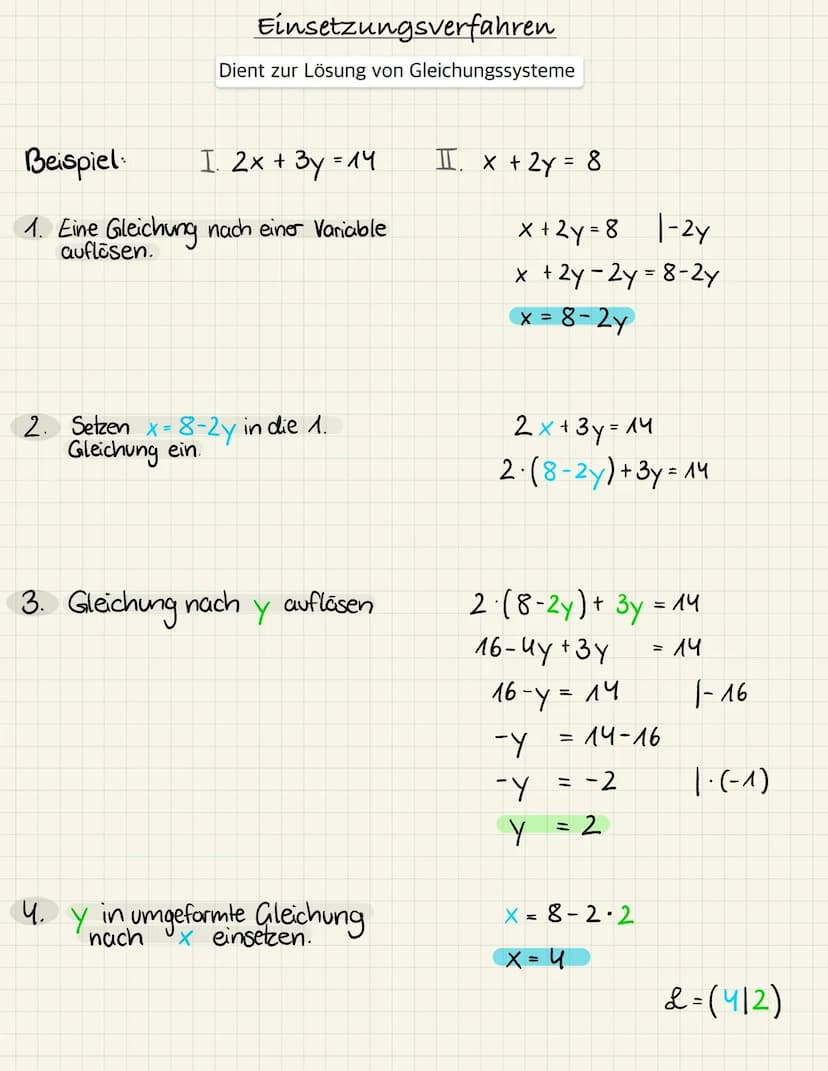 Einsetzungsverfahren
Dient zur Lösung von Gleichungssysteme
Beispiel: I. 2x + 3y = 14 II. x + 2y = 8
1. Eine Gleichung nach einer Variable
auflösen.
x + 2y = 8 |-2y
x + 2y - 2y = 8-2y
x = 8-2y
2. Setzen x = 8-2y in die 1.
Gleichung ein.
2x + 3y = 14
2·(8-2y)+3y = 14
3. Gleichung nach y auflösen
2·(8-2y)+ 3y = 14
16-4y+3y = 14
16-y = 14 |-16
-y = 14-16
-y = -2 |·(-1)
y = 2
4. y in umgeformte Gleichung
nach x einsetzen.
x = 8-2·2
x = 4
L=(4|2)